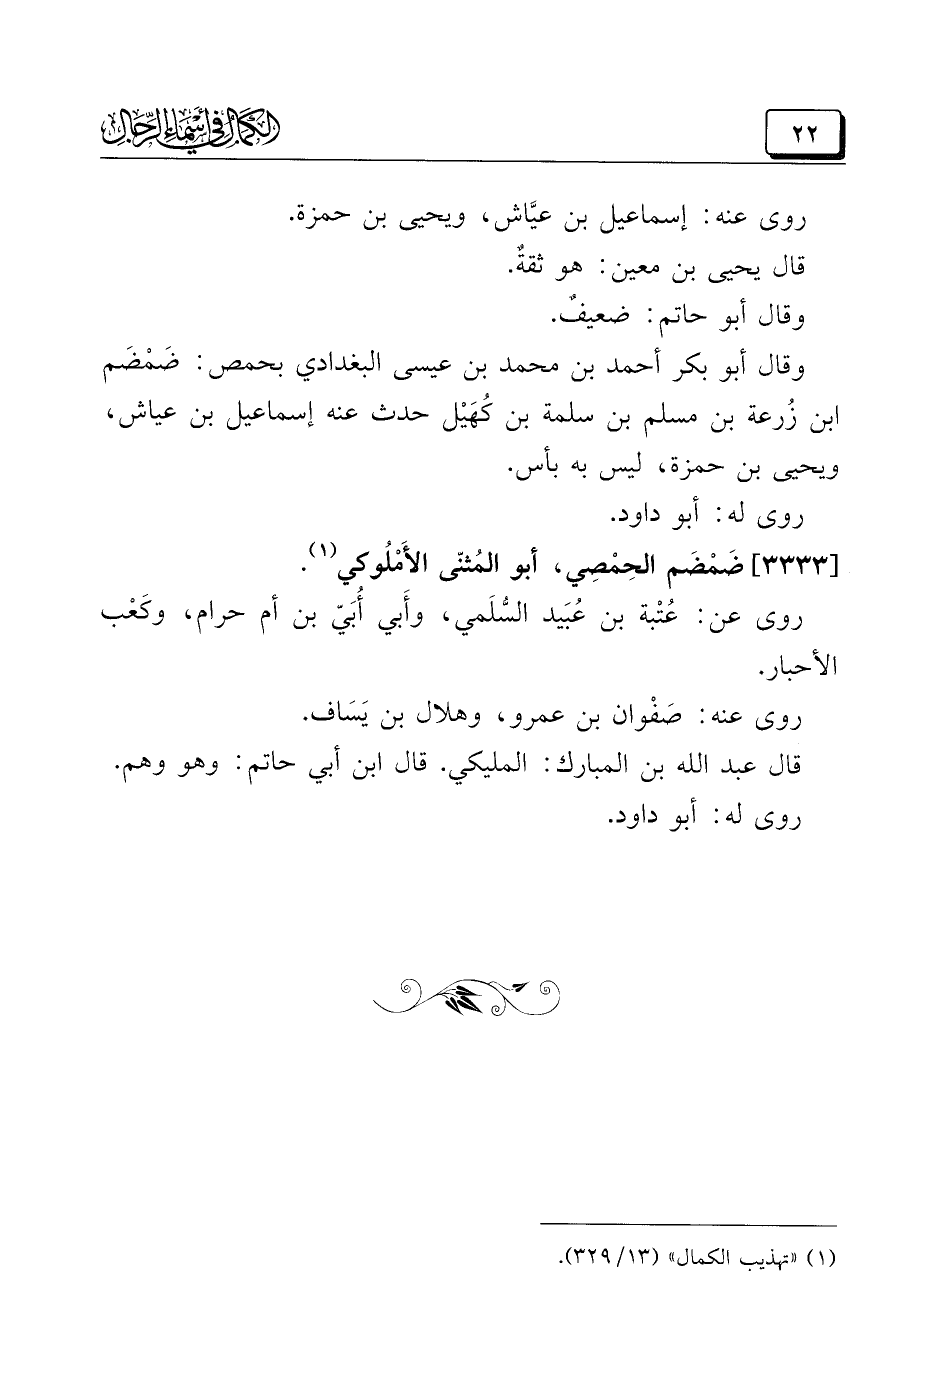 ٢٢
الكمال في أسماء الرجال
روى عنه: إسماعيل بن عيَّاش، ويحيى بن حمزة.
قال يحيى بن معين: هو ثقةٌ.
وقال أبو حاتم: ضعيفٌ.
وقال أبو بكر أحمد بن محمد بن عيسى البغدادي بحمص: ضَمْضَم
ابن زُرعة بن مسلم بن سلمة بن كُهَيْل حدث عنه إسماعيل بن عياش،
ويحيى بن حمزة، ليس به بأس.
روى له: أبو داود.
[٣٣٣٣] ضَمْضَم الحِمْصِي، أبو المُثنّى الأَمْلُوكي(١).
روى عن: عُتْبة بن عُبَيد السُّلَمي، وأَبي أُبَيّ بن أم حرام، وكَعْب
الأحبار.
روى عنه: صَفْوان بن عمرو، وهلال بن يَسَاف.
قال عبد الله بن المبارك: المليكي. قال ابن أبي حاتم: وهو وهم.
روى له: أبو داود.
(١) «تهذيب الكمال» (١٣/ ٣٢٩).